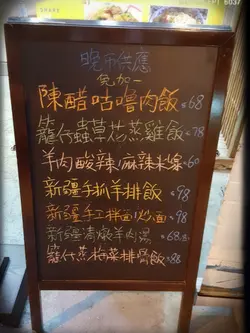 晚市供應
免加一
陳醋咕嚕肉飯 $68
籠仔蟲草花蒸雞飯 $78
羊肉酸辣/麻辣米線 $60
新疆手抓羊排飯 $98
新疆手工拌面/炒面 $98
新疆清燉羊肉湯 $68
籠仔蒸梅菜排骨飯 $88